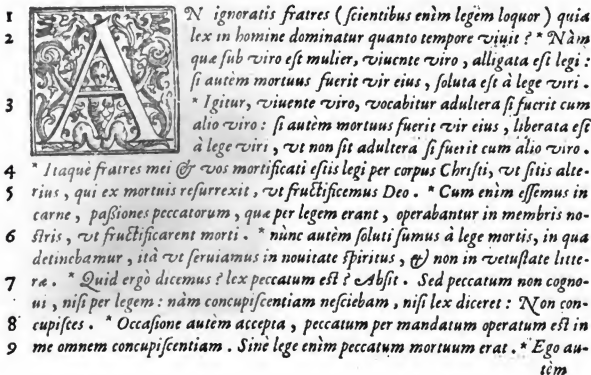 1 AN ignoratis fratres (ſcientibus enìm legèm loquor) quia
2 lex in homine dominatur quanto tempore viuit? * Nàm
quæ ſub viro eſt mulier, viuente viro, alligata eſt legi:
ſi autèm mortuus fuerit vir eius, ſoluta eſt à lege viri.
3 * Igitur, viuente viro, vocabitur adultera ſi fuerit cum
alio viro: ſi autèm mortuus fuerit vir eius, liberata eſt
à lege viri, vt non ſit adultera ſi fuerit cum alio viro.
4 * Itaquè fratres mei & vos mortificati eſtis legi per corpus Chriſti, vt ſitis alte-
5 rius, qui ex mortuis reſurrexit, vt fructificemus Deo. * Cum enìm eſſemus in
carne, paßiones peccatorum, quæ per legem erant, operabantur in membris no-
6 ſtris, vt fructificarent morti. * nùnc autèm ſoluti ſumus à lege mortis, in qua
detinebamur, ità vt ſeruiamus in nouitate ſpiritus, & non in vetuſtate litte-
7 ræ. * Quid ergò dicemus? lex peccatum eſt? Abſit. Sed peccatum non cogno-
ui, niſi per legem: nàm concupiſcentiam neſciebam, niſi lex diceret: Non con-
8 cupiſces. * Occaſione autèm accepta, peccatum per mandatum operatum eſt in
9 me omnem concupiſcentiam. Sinè lege enìm peccatum mortuum erat. * Ego au-
tèm